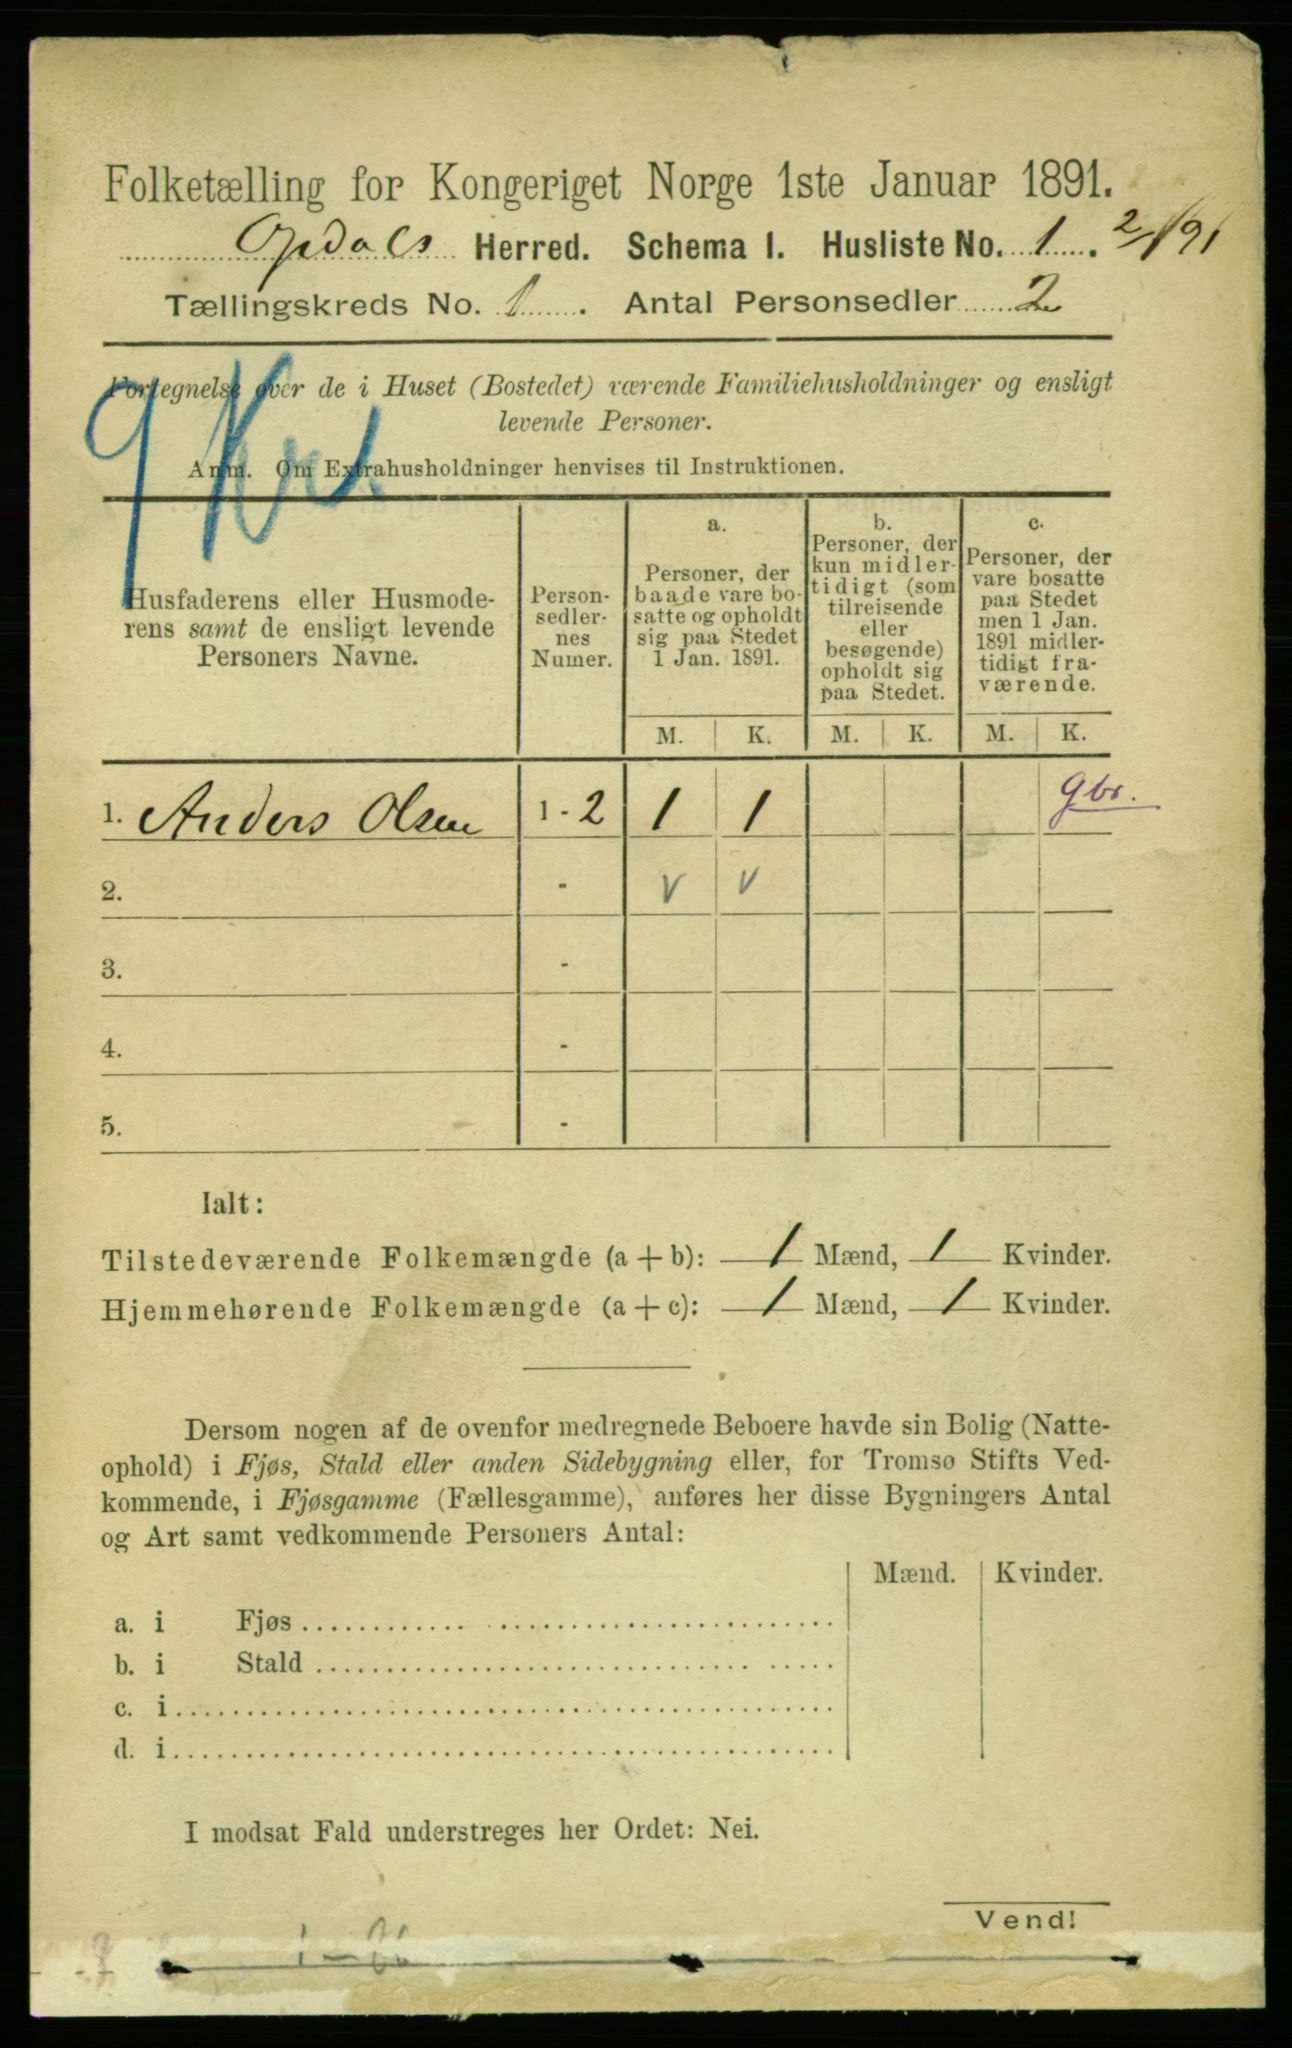 Folketælling for Kongeriget Norge 1ste Januar 1891.
Opdals Herred. Schema 1. Husliste No. 1. 2/1 91
Tællingskreds No. 1. Antal Personsedler 2
Fortegnelse over de i Huset (Bostedet) værende Familiehusholdninger og ensligt
levende Personer.
Anm. Om Extrahusholdninger henvises til Instruktionen.
Husfaderens eller Husmode-
rens samt de ensligt levende
Personers Navne.
Person-
sedler-
nes
Numer.
a.
Personer, der
baade vare bo-
satte og opholdt
sig paa Stedet
1 Jan. 1891.
b.
Personer, der
kun midler-
tidigt (som
tilreisende
eller
besøgende)
opholdt sig
paa Stedet.
c.
Personer, der
vare bosatte
paa Stedet
men 1 Jan.
1891 midler-
tidigt fra-
værende.
M. K. M. K. M. K.
1. Anders Olsen 1 - 2 1 1 gbr.
2. - V V
3. -
4. -
5. -
Ialt:
Tilstedeværende Folkemængde (a + b): 1 Mænd, 1 Kvinder.
Hjemmehørende Folkemængde (a + c): 1 Mænd, 1 Kvinder.
Dersom nogen af de ovenfor medregnede Beboere havde sin Bolig (Natte-
ophold) i Fjøs, Stald eller anden Sidebygning eller, for Tromsø Stifts Ved-
kommende, i Fjøsgamme (Fællesgamme), anføres her disse Bygningers Antal
og Art samt vedkommende Personers Antal:
Mænd. Kvinder.
a. i Fjøs
b. i Stald
c. i
d. i
I modsat Fald understreges her Ordet: Nei.
Vend!